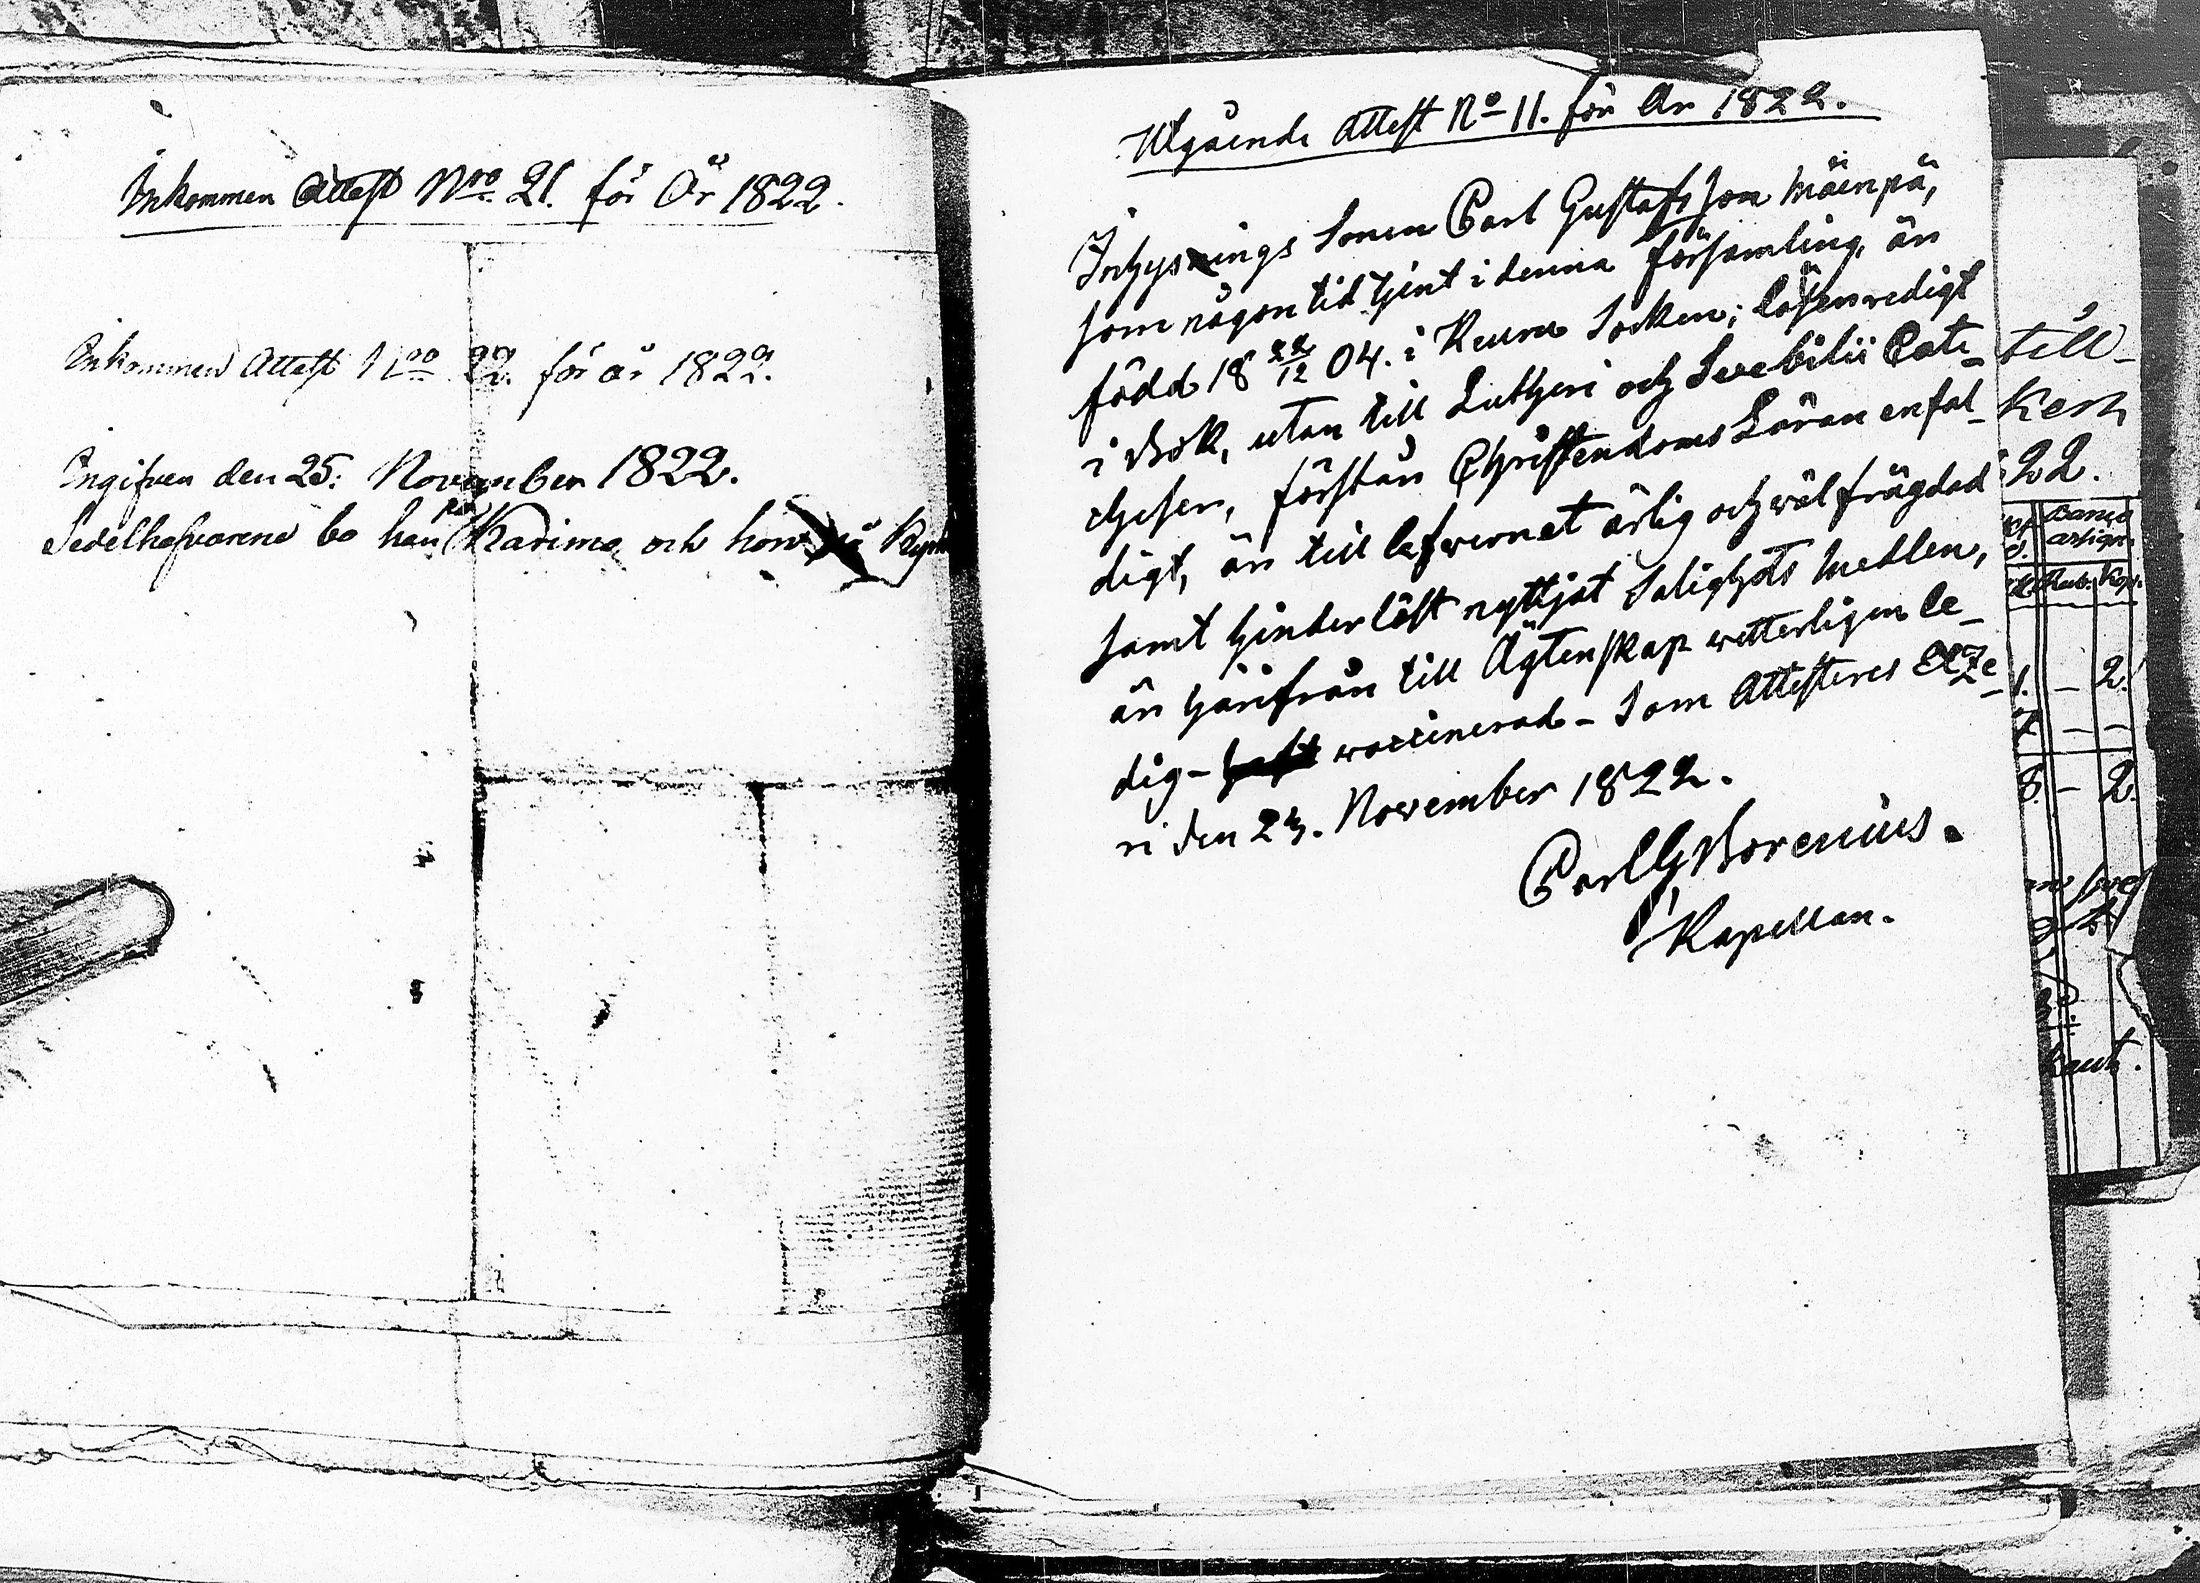 Inkommen Attest Nro 21. för År 1822.
Inkommen Attest Nro 22. för år 1822.
Ingifven den 25: November 1822.
Sedelhafvarena bo han på Karimo och hon
Utgående Attest No 11. för År 1822.
Inhysings Sonen Carl Gustafsson Mäenpä,
som någon tid tjent i denna församling, är
född 18 22/12 04. i Keuru Socken; läser redigt
i Bok, utan till Lutheri och Svebilii Cate-
cheser, förstår Christendoms Läran enfal-
digt, är till lefvernet ärlig och välfrägdad
samt hinderlöst nyttjat Salighets Medlen,
är härifrån till Ägtenskap vetterligen le-
dig - vaccinerad - Som Attesteres Etze-
ri den 23. November 1822.
Carl G Borenius.
Kapellan.
till
22.
Banco
assign.
Rub. Kop.
1. - 2.
7. - -
8. - 2.